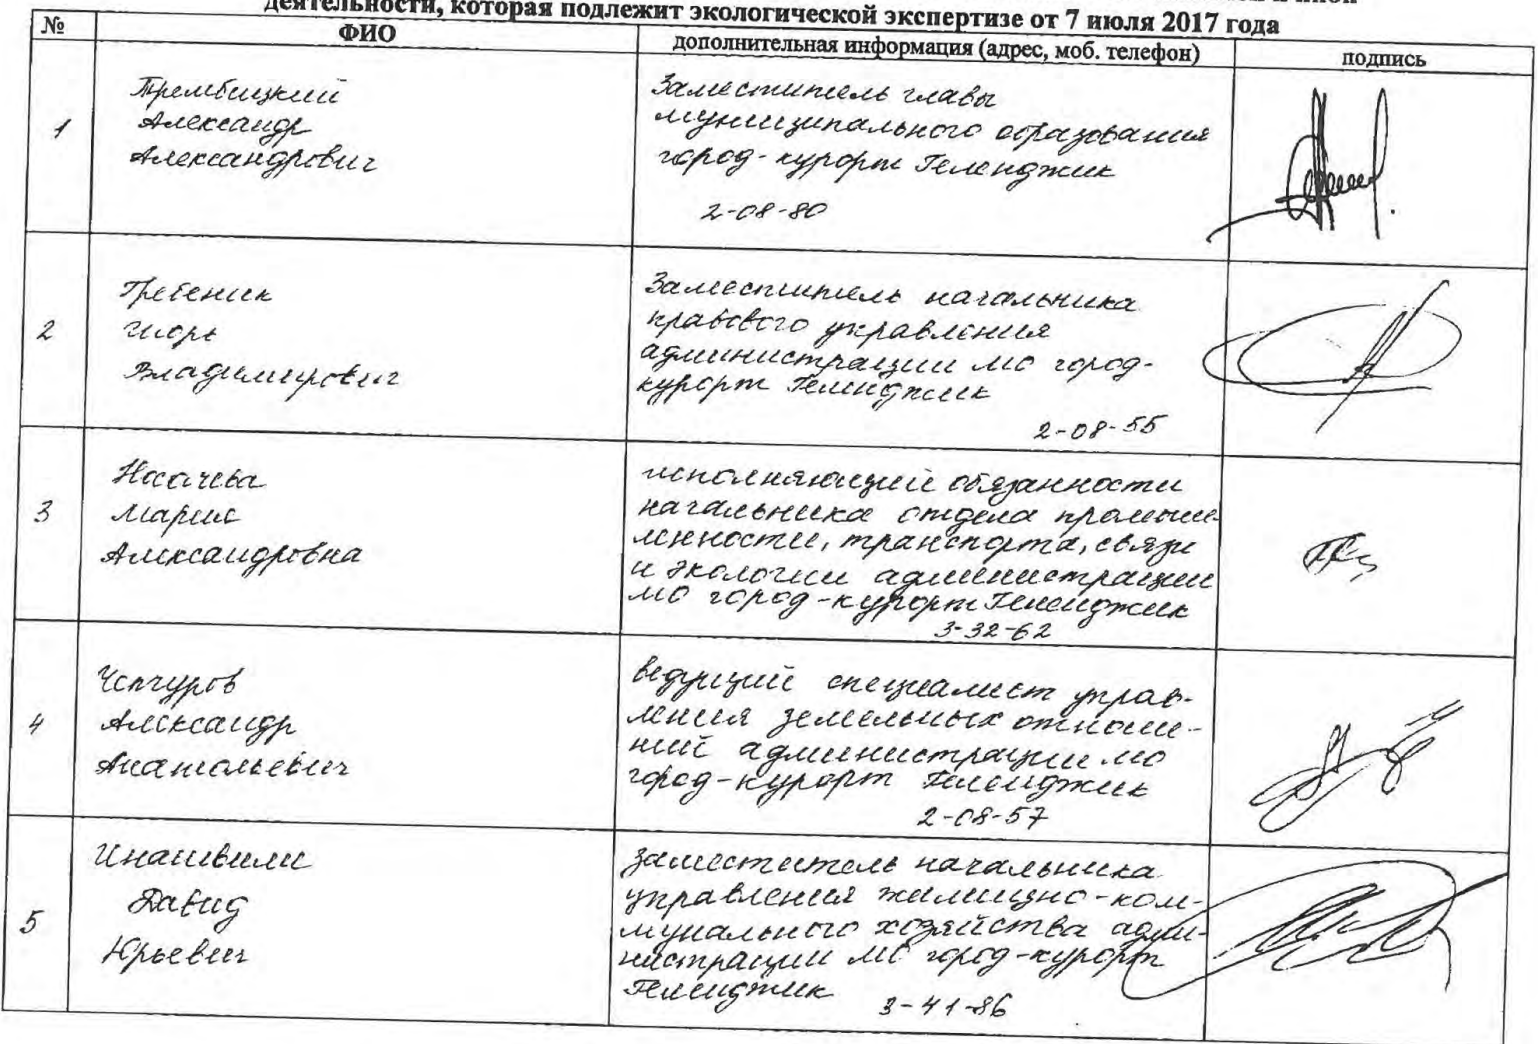 деятельности, которая подлежит экологической экспертизе от 7 июля 2017 года
№ ФИО дополнительная информация (адрес, моб. телефон) подпись
1
Трембицкий
Александр
Александрович
Заместитель главы
муниципального образования
город-курорт Геленджик
2-08-80
2
Гребеник
Игорь
Владимирович
Заместитель начальника
правового управления
администрации МО город-
курорт Геленджик
2-08-55
3
Носачева
Мария
Александровна
исполняющий обязанности
начальника отдела промыш-
ленности, транспорта, связи
и экологии администрации
МО город-курорт Геленджик
3-32-62
4
Чепуров
Александр
Анатольевич
ведущий специалист управ-
ления земельных отноше-
ний администрации МО
город-курорт Геленджик
2-08-57
5
Инашвили
Давид
Юрьевич
заместитель начальника
управления жилищно-ком-
мунального хозяйства адми-
нистрации МО город-курорт
Геленджик 3-41-86